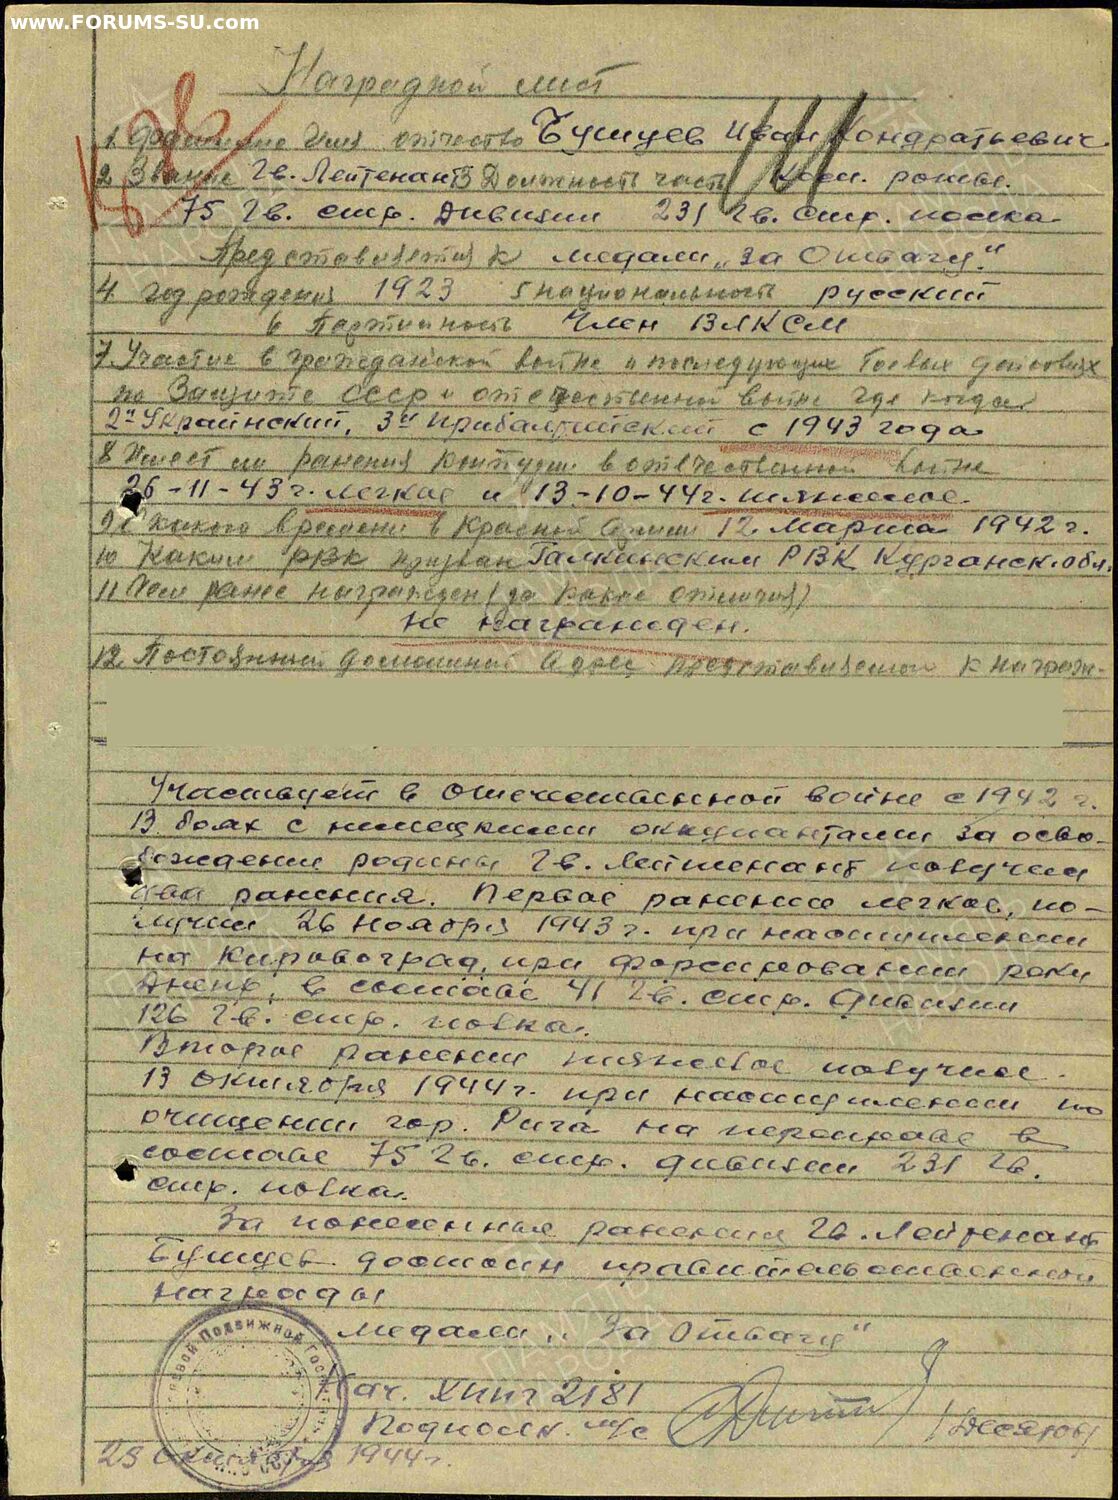 www.FORUMS-SU.com
Наградной лист
1. Фамилие Имя отчество Бушуев Иван Кондратьевич.
2 Звание Гв. Лейтенант 3 Должность часть Ком. роты.
75 Гв. стр. Дивизии 231 Гв. стр. полка
Представляется к медали „за Отвагу“
4. год рождения 1923 5 национальность русский
6 Партийность Член ВЛКСМ
7. Участие в гражданской войне и последующих боевых действиях
по Защите СССР и отечественной войне где когда
2й Украинский, 3й Прибалтийский с 1943 года
8 Имеет ли ранения контузии в отечественной войне
26-11-43 г. легкое и 13-10-44 г. тяжелое.
9 С какого времени в Красной Армии 12. Марта 1942 г.
10 Каким РВК призван Галкинским РВК Курганск. обл.
11 Чем ранее награжден (за какие отличия)
не награжден.
12. Постоянный домашний Адрес представляемого к награж-
Участвует в отечественной войне с 1942 г.
В боях с немецкими оккупантами за осво-
бождении родины Гв. Лейтенант получил
два ранения. Первое ранение легкое, по-
лучил 26 Ноября 1943 г. при наступлении
на Кировоград, при форсировании реки
Днепр, в составе 41 Гв. стр. дивизии
126 Гв. стр. полка.
Второе ранении тяжелое получил.
13 октября 1944 г. при наступлении по
очищении гор. Рига на переправе в
составе 75 Гв. стр. дивизии 231 Гв.
стр. полка.
За понесенные ранения Гв. Лейтенант
Бушуев достоин правительственной
награды
медали „За Отвагу“
Нач. ХППГ 2181
Подполк. м/с
29 октября 1944 г.
Полевой Подвижной Гос